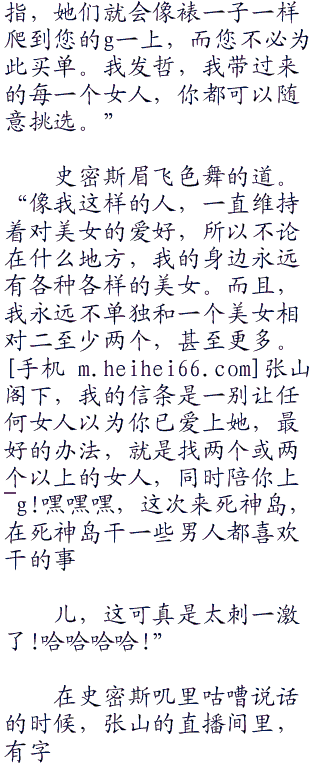 指，她们就会像裱一子一样
爬到您的g一上，而您不必为
此买单。我发哲，我带过来
的每一个女人，你都可以随
意挑选。”
史密斯眉飞色舞的道。
“像我这样的人，一直维持
着对美女的爱好，所以不论
在什么地方，我的身边永远
有各种各样的美女。而且，
我永远不单独和一个美女相
对二至少两个，甚至更多。
[手机 m.heihei66.com]张山
阁下，我的信条是一别让任
何女人以为你已爱上她，最
好的办法，就是找两个或两
个以上的女人，同时陪你上
_g!嘿嘿嘿，这次来死神岛，
在死神岛干一些男人都喜欢
干的事
儿，这可真是太刺一激
了!哈哈哈哈!”
在史密斯叽里咕嘈说话
的时候，张山的直播间里，
有字